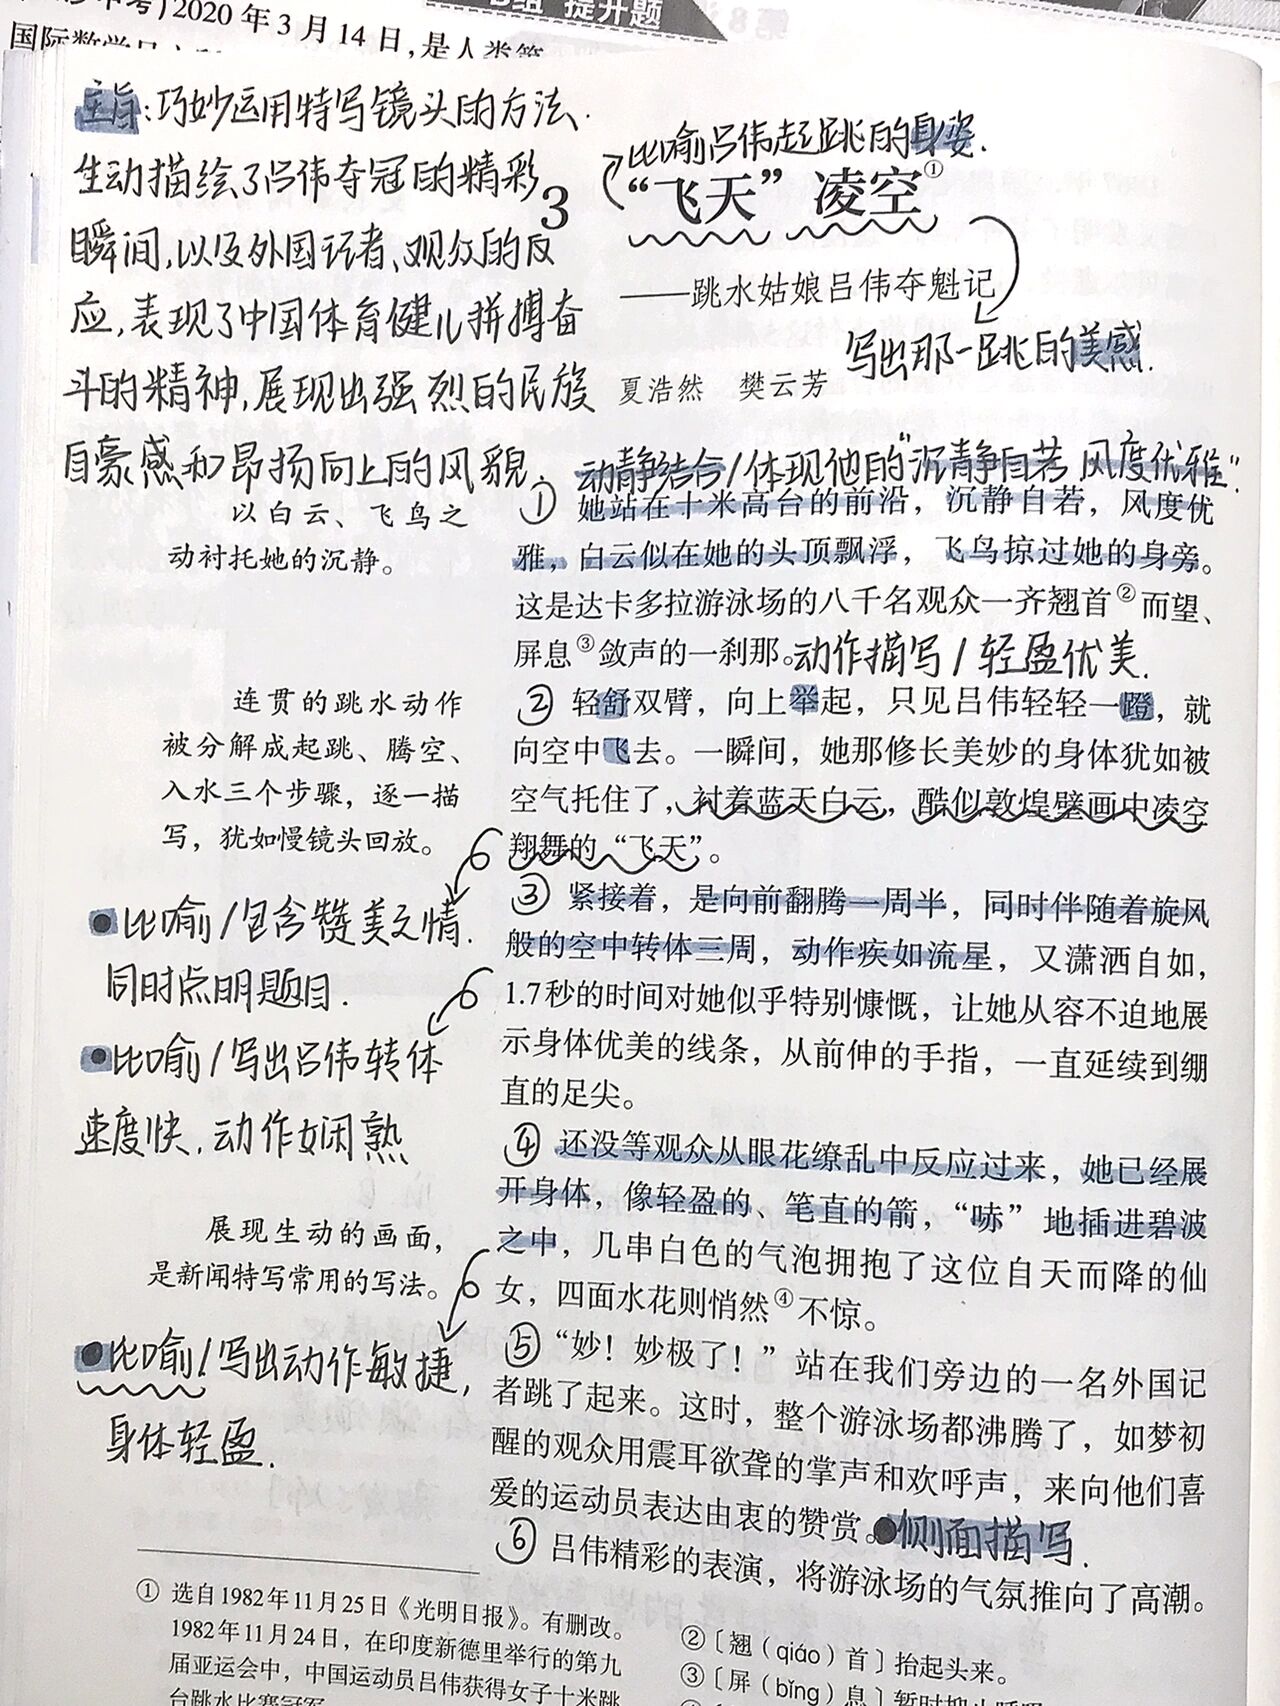 中考)2020年3月14日,是人类第
国际数学
提升题
主旨:巧妙运用特写镜头的方法.
生动描绘了吕伟夺冠的精彩
瞬间,以及外国记者、观众的反
应,表现了中国体育健儿拼搏奋
斗的精神,展现出强烈的民族
自豪感和昂扬向上的风貌.
比喻吕伟起跳的身姿.
3 “飞天”凌空①
——跳水姑娘吕伟夺魁记
写出那一跳的美感.
夏浩然 樊云芳
动静结合/体现他的“沉静自若,风度优雅”.
以白云、飞鸟之
动衬托她的沉静。
① 她站在十米高台的前沿，沉静自若，风度优
雅，白云似在她的头顶飘浮，飞鸟掠过她的身旁。
这是达卡多拉游泳场的八千名观众一齐翘首②而望、
屏息③敛声的一刹那。动作描写/轻盈优美.
连贯的跳水动作
被分解成起跳、腾空、
入水三个步骤，逐一描
写，犹如慢镜头回放。
② 轻舒双臂，向上举起，只见吕伟轻轻一蹬，就
向空中飞去。一瞬间，她那修长美妙的身体犹如被
空气托住了，衬着蓝天白云，酷似敦煌壁画中凌空
翔舞的“飞天”。
比喻/包含赞美之情.
同时点明题目.
比喻/写出吕伟转体
速度快.动作娴熟
③ 紧接着，是向前翻腾一周半，同时伴随着旋风
般的空中转体三周，动作疾如流星，又潇洒自如，
1.7秒的时间对她似乎特别慷慨，让她从容不迫地展
示身体优美的线条，从前伸的手指，一直延续到绷
直的足尖。
展现生动的画面，
是新闻特写常用的写法。
比喻/写出动作敏捷,
身体轻盈.
④ 还没等观众从眼花缭乱中反应过来，她已经展
开身体，像轻盈的、笔直的箭，“哧”地插进碧波
之中，几串白色的气泡拥抱了这位自天而降的仙
女，四面水花则悄然④不惊。
⑤ “妙！妙极了！”站在我们旁边的一名外国记
者跳了起来。这时，整个游泳场都沸腾了，如梦初
醒的观众用震耳欲聋的掌声和欢呼声，来向他们喜
爱的运动员表达由衷的赞赏。侧面描写.
⑥ 吕伟精彩的表演，将游泳场的气氛推向了高潮。
① 选自1982年11月25日《光明日报》。有删改。
1982年11月24日，在印度新德里举行的第九
届亚运会中，中国运动员吕伟获得女子十米跳
台跳水比赛冠军
②〔翘（qiáo）首〕抬起头来。
③〔屏（bǐng）息〕暂时抑止呼吸